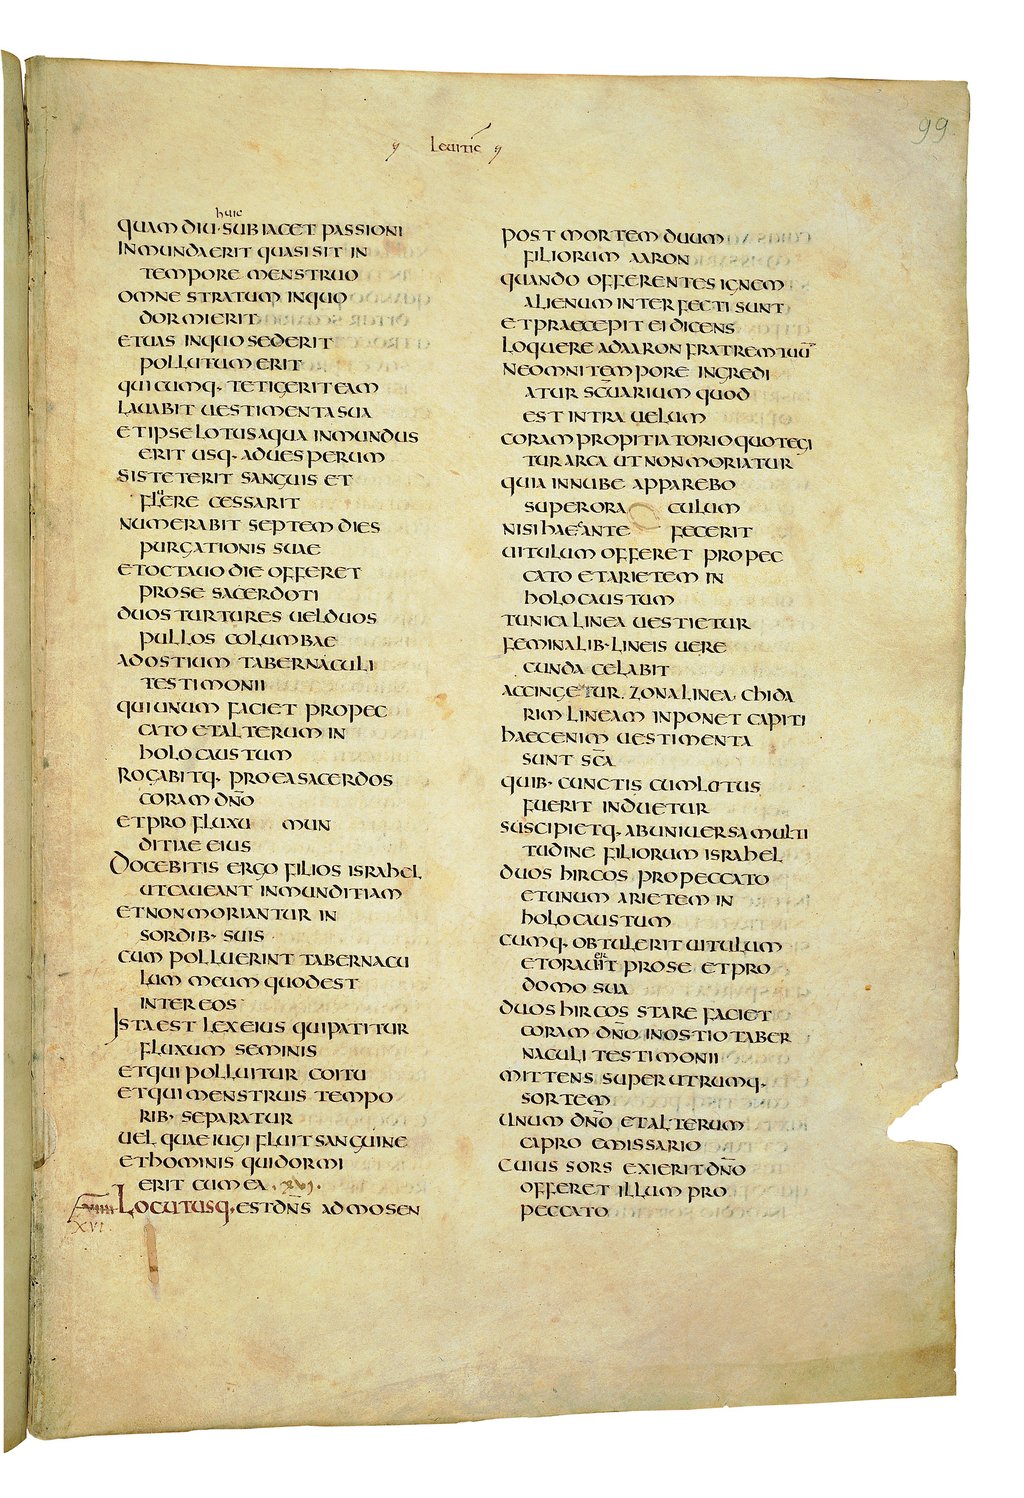 99.
Leuitic̄
huic
QUAMDIU·SUBIACET PASSIONI
INMUNDA ERIT QUASI SIT IN
TEMPORE MENSTRUO
OMNE STRATUM IN QUO
DORMIERIT
ET UAS IN QUO SEDERIT
POLLUTUM ERIT
QUICUMQ· TETIGERIT EAM
LAUABIT UESTIMENTA SUA
ET IPSE LOTUS AQUA INMUNDUS
ERIT USQ· AD UESPERUM
SI STETERIT SANGUIS ET
FLUERE CESSARIT
NUMERABIT SEPTEM DIES
PURGATIONIS SUAE
ET OCTAUO DIE OFFERET
PRO SE SACERDOTI
DUOS TURTURES UEL DUOS
PULLOS COLUMBAE
AD OSTIUM TABERNACULI
TESTIMONII
QUI UNUM FACIET PRO PEC
CATO ET ALTERUM IN
HOLOCAUSTUM
ROGABITQ· PRO EA SACERDOS
CORAM DN̄O
ET PRO FLUXU MUN
DITIAE EIUS
DOCEBITIS ERGO FILIOS ISRAHEL
UT CAUEANT INMUNDITIAM
ET NON MORIANTUR IN
SORDIB· SUIS
CUM POLLUERINT TABERNACU
LUM MEUM QUOD EST
INTER EOS
ISTA EST LEX EIUS QUI PATITUR
FLUXUM SEMINIS
ET QUI POLLUITUR COITU
ET QUI MENSTRUIS TEMPO
RIB· SEPARATUR
UEL QUAE IUGI FLUIT SANGUINE
ET HOMINIS QUI DORMI
ERIT CUM EA · XVI ·
LOCUTUSQ· EST DN̄S AD MOSEN
XVI
POST MORTEM DUUM
FILIORUM AARON
QUANDO OFFERENTES IGNEM
ALIENUM INTERFECTI SUNT
ET PRAECEPIT EI DICENS
LOQUERE AD AARON FRATREM TUŪ
NE OMNI TEMPORE INGREDI
ATUR SC̄UARIUM QUOD
EST INTRA UELUM
CORAM PROPITIATORIO QUO TEGI
TUR ARCA UT NON MORIATUR
QUIA IN NUBE APPAREBO
SUPER ORA CULUM
NISI HAEC ANTE FECERIT
UITULUM OFFERET PRO PEC
CATO ET ARIETEM IN
HOLOCAUSTUM
TUNICA LINEA UESTIETUR
FEMINALIB· LINEIS UERE
CUNDA CELABIT
ACCINGETUR· ZONA LINEA· CHIDA
RIM LINEAM INPONET CAPITI
HAEC ENIM UESTIMENTA
SUNT SC̄A
QUIB· CUNCTIS CUM LOTUS
FUERIT INDUETUR
SUSCIPIETQ· AB UNIUERSA MULTI
TUDINE FILIORUM ISRAHEL
DUOS HIRCOS PRO PECCATO
ET UNUM ARIETEM IN
HOLOCAUSTUM
CUMQ· OBTULERIT UITULUM
ET ORAUERIT PRO SE ET PRO
DOMO SUA
DUOS HIRCOS STARE FACIET
CORAM DN̄O IN OSTIO TABER
NACULI TESTIMONII
MITTENS SUPER UTRUMQ·
SORTEM
UNUM DN̄O ET ALTERUM
CAPRO EMISSARIO
CUIUS SORS EXIERIT DN̄O
OFFERET ILLUM PRO
PECCATO